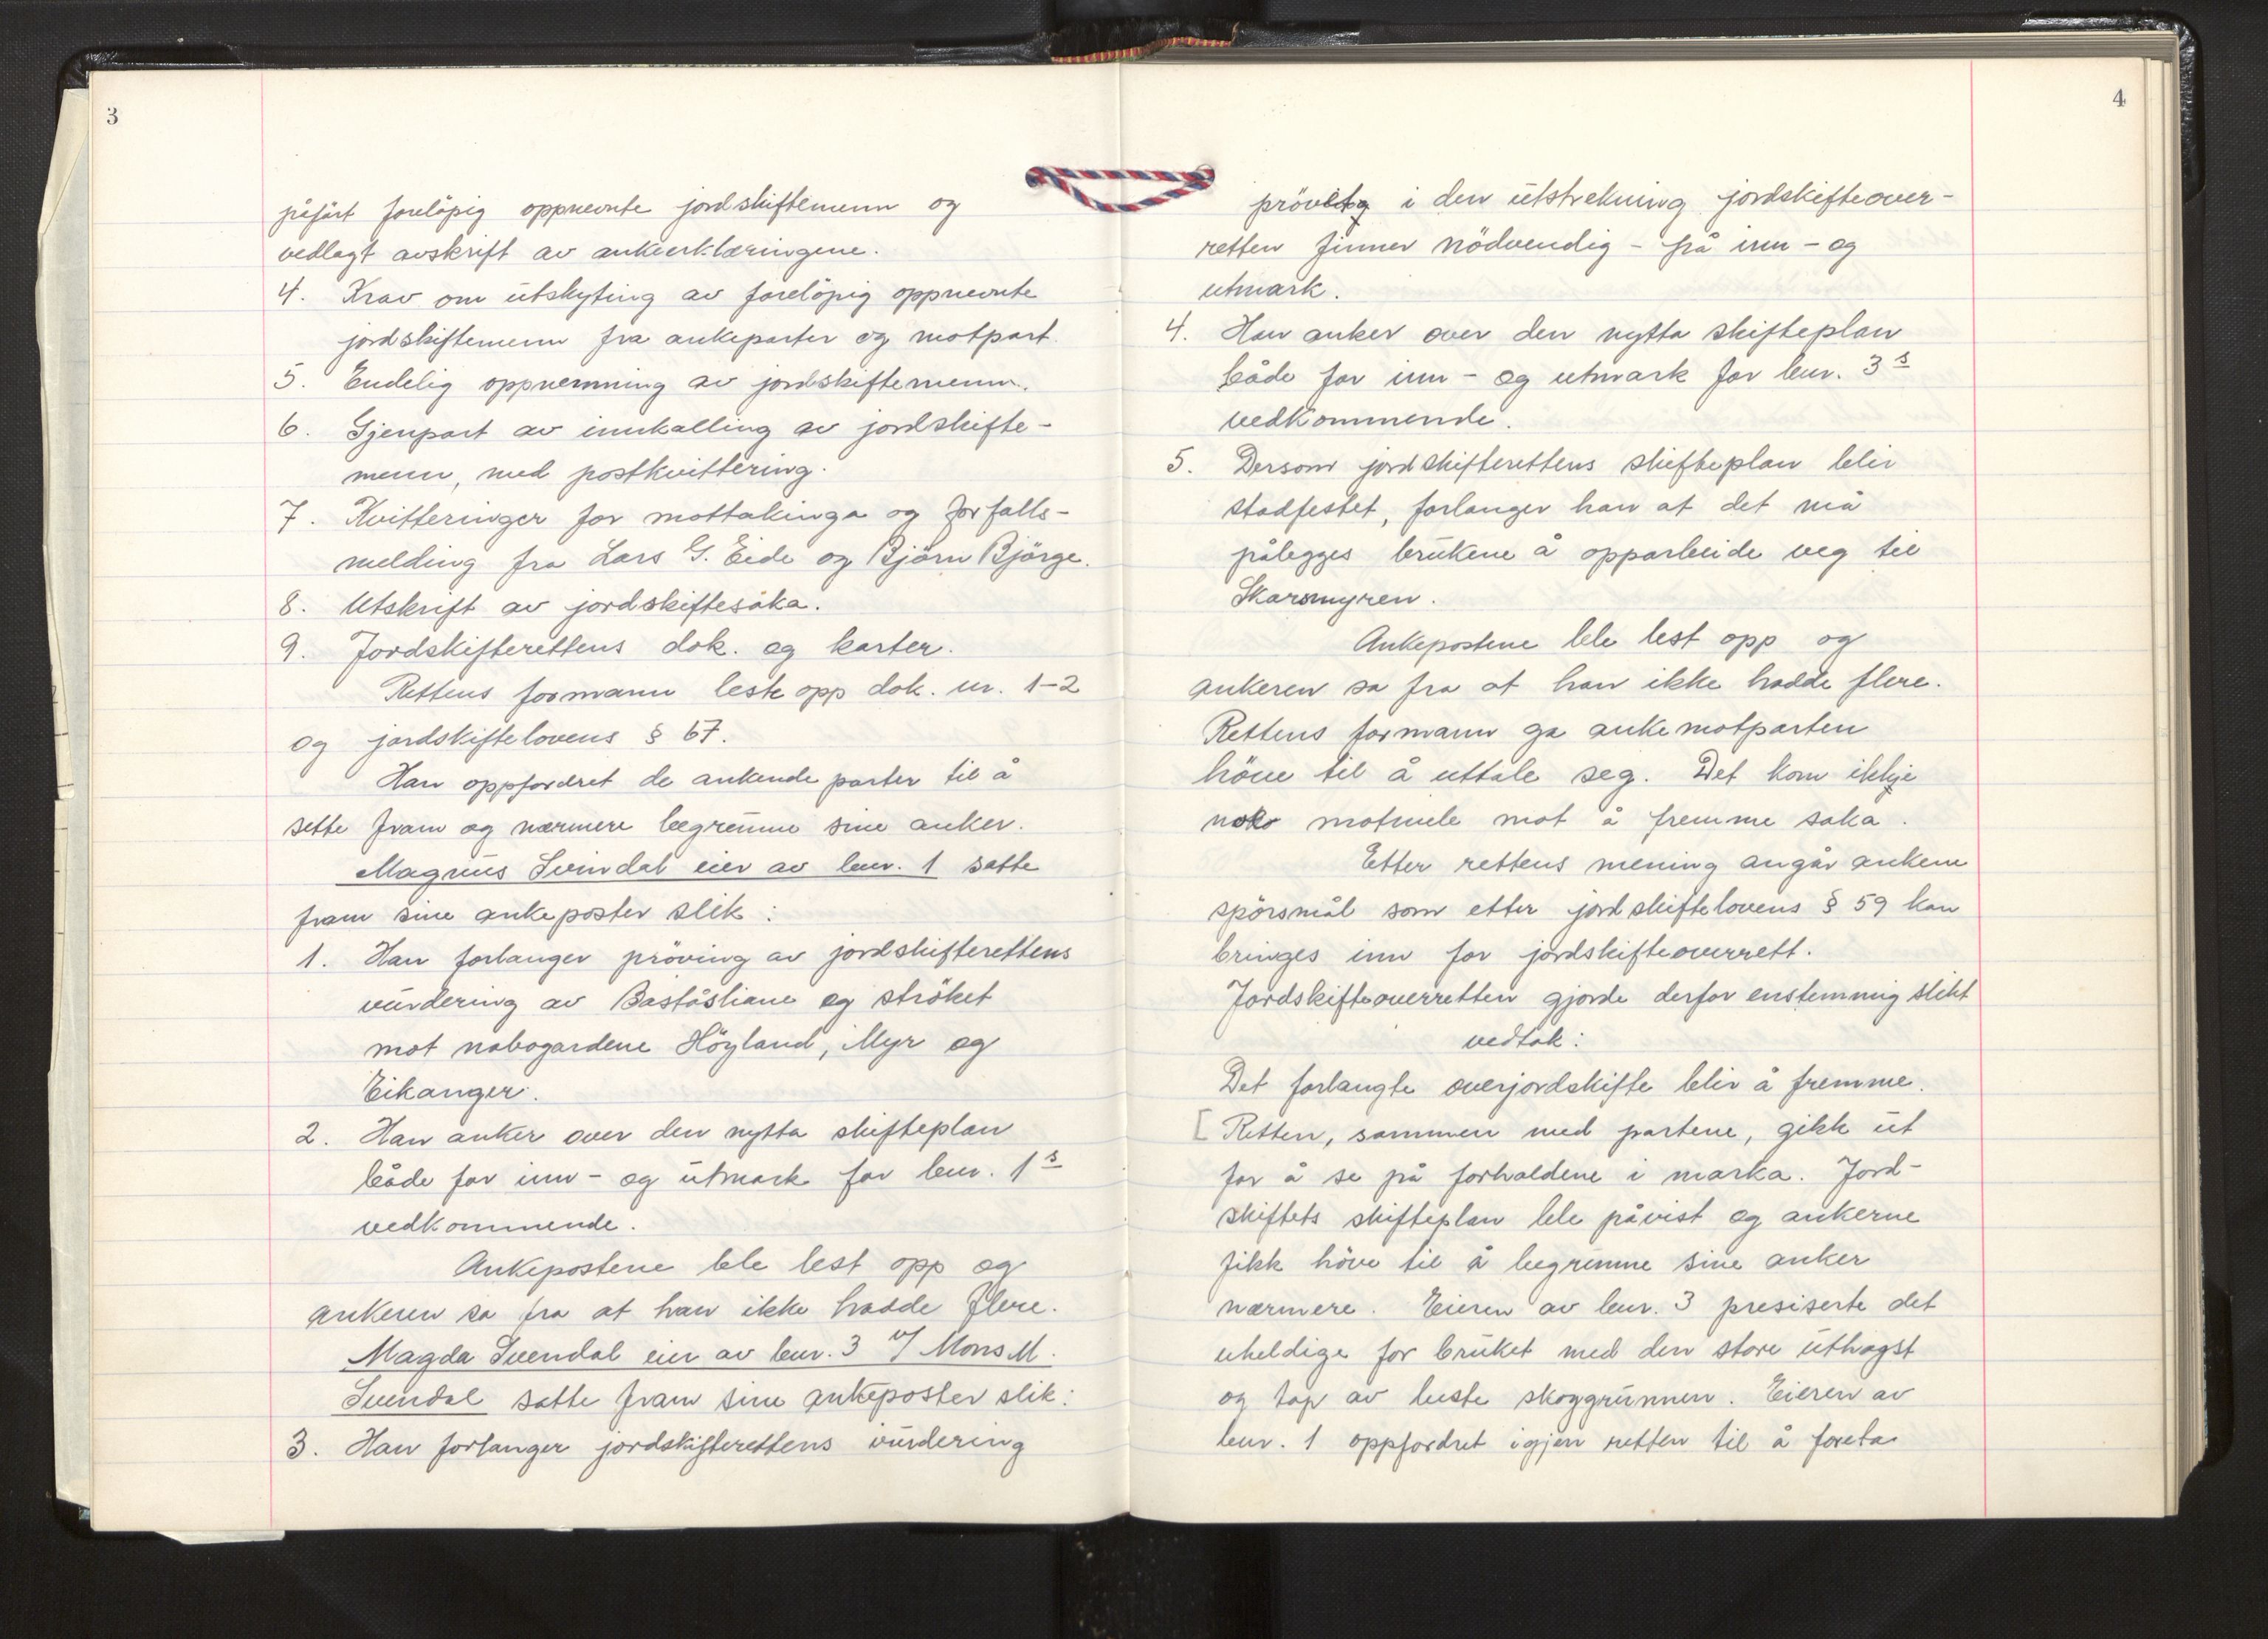 3
påført foreløpig oppnevnte jordskiftemenn og
vedlagt avskrift av ankeerklæringene.
4. Krav om utskyting av foreløpig oppnevnte
jordskiftemenn fra ankeparter og motpart.
5. Endelig oppnemning av jordskiftemenn.
6. Gjenpart av innkalling av jordskifte-
menn, med postkvittering.
7. Kvitteringer for mottakinga og forfalls-
melding fra Lars G. Eide og Bjørn Bjørge.
8. Utskrift av jordskiftesaka.
9. Jordskifterettens dok. og karter.
Rettens formann leste opp dok. nr. 1-2
og jordskiftelovens § 67.
Han oppfordret de ankende parter til å
sette fram og nærmere begrunne sine anker.
Magnus Svendal eier av bnr. 1 satte
fram sine ankeposter slik:
1. Han forlanger prøving av jordskifterettens
vurdering av Baståsliane og strøket
mot nabogardene Høyland, Myr og
Eikanger.
2. Han anker over den nytta skifteplan
både for inn- og utmark for bnr. 1s
vedkommende.
Ankepostene ble lest opp og
ankeren sa fra at han ikke hadde flere.
Magda Svendal eier av bnr. 3 v/ Mons M.
Svendal satte fram sine ankeposter slik:
3. Han forlanger jordskifterettens vurdering
4
prøvet i den utstrekning jordskifteover-
retten finner nødvendig - på inn- og
utmark.
4. Han anker over den nytta skifteplan
både for inn- og utmark for bnr. 3s
vedkommende.
5. Dersom jordskifterettens skifteplan blir
stadfestet, forlanger han at det må
pålegges brukene å opparbeide veg til
Skarsmyren.
Ankepostene ble lest opp og
ankeren sa fra at han ikke hadde flere.
Rettens formann ga ankemotparten
høve til å uttale seg. Det kom ikkje
noko motmele mot å fremme saka.
Etter rettens mening angår ankene
spørsmål som etter jordskiftelovens § 59 kan
bringes inn for jordskifteoverrett.
Jordskifteoverretten gjorde derfor enstemmig slikt
vedtak:
Det forlangte overjordskifte blir å fremme.
[Retten, sammen med partene, gikk ut
for å se på forholdene i marka. Jord-
skiftets skifteplan ble påvist og ankerne
fikk høve til å begrunne sine anker
nærmere. Eieren av bnr. 3 presiserte det
uheldige for bruket med den store uthogst
og tap av beste skoggrunnen. Eieren av
bnr. 1 oppfordret igjen retten til å foreta